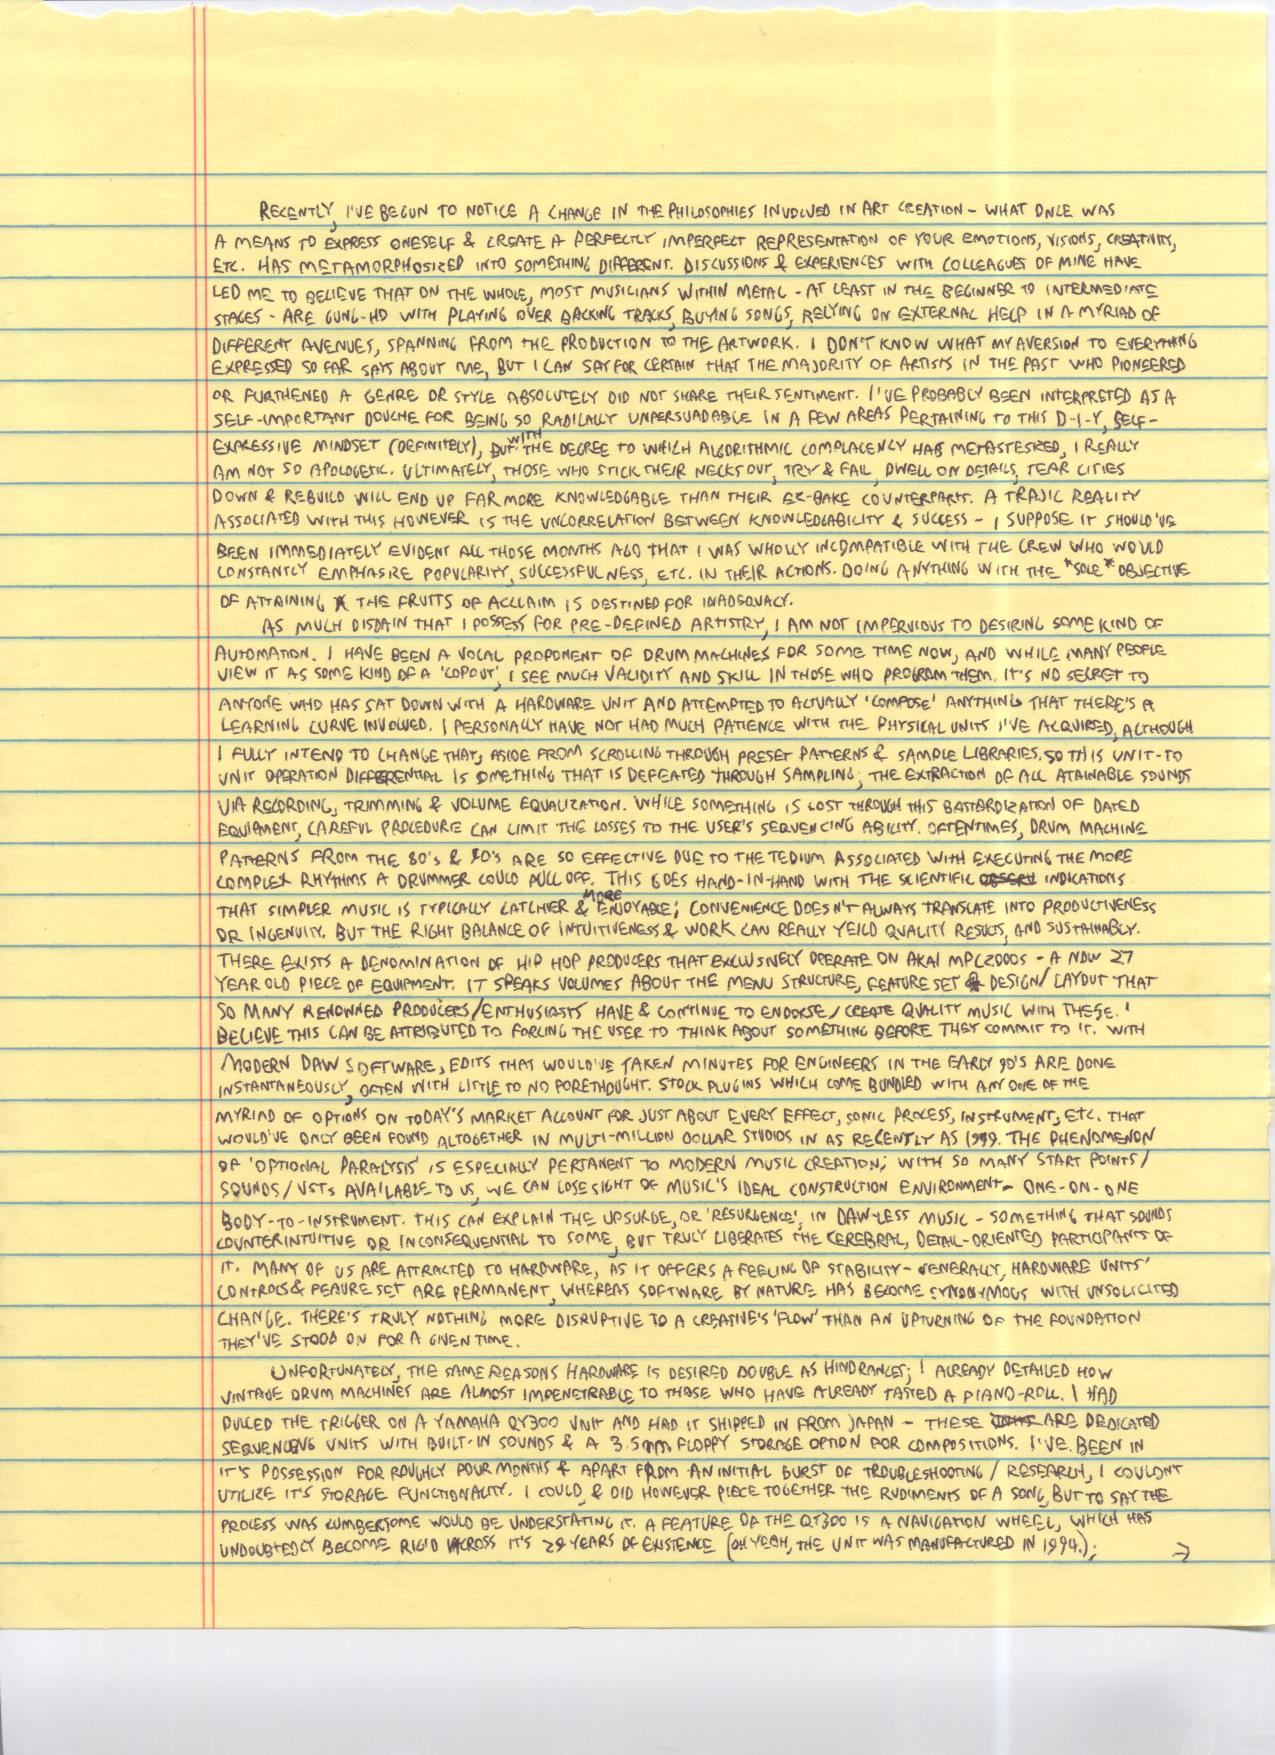 RECENTLY, I'VE BEGUN TO NOTICE A CHANGE IN THE PHILOSOPHIES INVOLVED IN ART CREATION - WHAT ONCE WAS
A MEANS TO EXPRESS ONESELF & CREATE A PERFECTLY IMPERFECT REPRESENTATION OF YOUR EMOTIONS, VISIONS, CREATIVITY,
ETC. HAS METAMORPHOSIZED INTO SOMETHING DIFFERENT. DISCUSSIONS & EXPERIENCES WITH COLLEAGUES OF MINE HAVE
LED ME TO BELIEVE THAT ON THE WHOLE, MOST MUSICIANS WITHIN METAL - AT LEAST IN THE BEGINNER TO INTERMEDIATE
STAGES - ARE GUNG-HO WITH PLAYING OVER BACKING TRACKS, BUYING SONGS, RELYING ON EXTERNAL HELP IN A MYRIAD OF
DIFFERENT AVENUES, SPANNING FROM THE PRODUCTION TO THE ARTWORK. I DON'T KNOW WHAT MY AVERSION TO EVERYTHING
EXPRESSED SO FAR SAYS ABOUT ME, BUT I CAN SAY FOR CERTAIN THAT THE MAJORITY OF ARTISTS IN THE PAST WHO PIONEERED
OR FURTHENED A GENRE OR STYLE ABSOLUTELY DID NOT SHARE THEIR SENTIMENT. I'VE PROBABLY BEEN INTERPRETED AS A
SELF-IMPORTANT DOUCHE FOR BEING SO RADICALLY UNPERSUADABLE IN A FEW AREAS PERTAINING TO THIS D-I-Y, SELF-
EXPRESSIVE MINDSET (DEFINITELY), BUT WITH THE DEGREE TO WHICH ALGORITHMIC COMPLACENCY HAS METASTESKED, I REALLY
AM NOT SO APOLOGETIC. ULTIMATELY, THOSE WHO STICK THEIR NECKS OUT, TRY & FAIL, DWELL ON DETAILS, TEAR CITIES
DOWN & REBUILD WILL END UP FAR MORE KNOWLEDGABLE THAN THEIR EZ-BAKE COUNTERPARTS. A TRAJIC REALITY
ASSOCIATED WITH THIS HOWEVER IS THE UNCORRELATION BETWEEN KNOWLEDGABILITY & SUCCESS - I SUPPOSE IT SHOULD'VE
BEEN IMMEDIATELY EVIDENT ALL THOSE MONTHS AGO THAT I WAS WHOLLY INCOMPATIBLE WITH THE CREW WHO WOULD
CONSTANTLY EMPHASIZE POPULARITY, SUCCESSFULNESS, ETC. IN THEIR ACTIONS. DOING ANYTHING WITH THE *SOLE* OBJECTIVE
OF ATTAINING THE FRUITS OF ACCLAIM IS DESTINED FOR INADEQUACY.
AS MUCH DISDAIN THAT I POSSESS FOR PRE-DEFINED ARTISTRY, I AM NOT IMPERVIOUS TO DESIRING SOME KIND OF
AUTOMATION. I HAVE BEEN A VOCAL PROPONENT OF DRUM MACHINES FOR SOME TIME NOW, AND WHILE MANY PEOPLE
VIEW IT AS SOME KIND OF A 'COPOUT', I SEE MUCH VALIDITY AND SKILL IN THOSE WHO PROGRAM THEM. IT'S NO SECRET TO
ANYONE WHO HAS SAT DOWN WITH A HARDWARE UNIT AND ATTEMPTED TO ACTUALLY 'COMPOSE' ANYTHING THAT THERE'S A
LEARNING CURVE INVOLVED. I PERSONALLY HAVE NOT HAD MUCH PATIENCE WITH THE PHYSICAL UNITS I'VE ACQUIRED, ALTHOUGH
I FULLY INTEND TO CHANGE THAT, ASIDE FROM SCROLLING THROUGH PRESET PATTERNS & SAMPLE LIBRARIES. SO THIS UNIT-TO
UNIT OPERATION DIFFERENTIAL IS SOMETHING THAT IS DEFEATED THROUGH SAMPLING; THE EXTRACTION OF ALL ATAINABLE SOUNDS
VIA RECORDING, TRIMMING & VOLUME EQUALIZATION. WHILE SOMETHING IS LOST THROUGH THIS BASTARDIZATION OF DATED
EQUIPMENT, CAREFUL PROCEDURE CAN LIMIT THE LOSSES TO THE USER'S SEQUENCING ABILITY. OFTENTIMES, DRUM MACHINE
PATTERNS FROM THE 80'S & 90'S ARE SO EFFECTIVE DUE TO THE TEDIUM ASSOCIATED WITH EXECUTING THE MORE
COMPLEX RHYTHMS A DRUMMER COULD PULL OFF. THIS GOES HAND-IN-HAND WITH THE SCIENTIFIC INDICATIONS
THAT SIMPLER MUSIC IS TYPICALLY CATCHIER & MORE ENJOYABLE; CONVENIENCE DOESN'T ALWAYS TRANSLATE INTO PRODUCTIVENESS
OR INGENUITY. BUT THE RIGHT BALANCE OF INTUITIVENESS & WORK CAN REALLY YEILD QUALITY RESULTS, AND SUSTAINABLY.
THERE EXISTS A DENOMINATION OF HIP HOP PRODUCERS THAT EXCLUSIVELY OPERATE ON AKAI MPC2000S - A NOW 27
YEAR OLD PIECE OF EQUIPMENT. IT SPEAKS VOLUMES ABOUT THE MENU STRUCTURE, FEATURE SET & DESIGN/LAYOUT THAT
SO MANY RENOWNED PRODUCERS/ENTHUSIASTS HAVE & CONTINUE TO ENDORSE/CREATE QUALITY MUSIC WITH THESE. I
BELIEVE THIS CAN BE ATTRIBUTED TO FORCING THE USER TO THINK ABOUT SOMETHING BEFORE THEY COMMIT TO IT. WITH
MODERN DAW SOFTWARE, EDITS THAT WOULD'VE TAKEN MINUTES FOR ENGINEERS IN THE EARLY 90'S ARE DONE
INSTANTANEOUSLY, OFTEN WITH LITTLE TO NO FORETHOUGHT. STOCK PLUGINS WHICH COME BUNDLED WITH ANY ONE OF THE
MYRIAD OF OPTIONS ON TODAY'S MARKET ACCOUNT FOR JUST ABOUT EVERY EFFECT, SONIC PROCESS, INSTRUMENT, ETC. THAT
WOULD'VE ONLY BEEN FOUND ALTOGETHER IN MULTI-MILLION DOLLAR STUDIOS IN AS RECENTLY AS 1999. THE PHENOMENON
OF 'OPTIONAL PARALYSIS' IS ESPECIALLY PERTANENT TO MODERN MUSIC CREATION; WITH SO MANY START POINTS/
SOUNDS/VSTs AVAILABLE TO US, WE CAN LOSE SIGHT OF MUSIC'S IDEAL CONSTRUCTION ENVIRONMENT - ONE-ON-ONE
BODY-TO-INSTRUMENT. THIS CAN EXPLAIN THE UPSURGE, OR 'RESURGENCE', IN DAWLESS MUSIC - SOMETHING THAT SOUNDS
COUNTERINTUITIVE OR INCONSEQUENTIAL TO SOME, BUT TRULY LIBERATES THE CEREBRAL, DETAIL-ORIENTED PARTICIPANTS OF
IT. MANY OF US ARE ATTRACTED TO HARDWARE, AS IT OFFERS A FEELING OF STABILITY - GENERALLY, HARDWARE UNITS'
CONTROLS & FEAURE SET ARE PERMANENT, WHEREAS SOFTWARE BY NATURE HAS BECOME SYNONYMOUS WITH UNSOLICITED
CHANGE. THERE'S TRULY NOTHING MORE DISRUPTIVE TO A CREATIVE'S 'FLOW' THAN AN UPTURNING OF THE FOUNDATION
THEY'VE STOOD ON FOR A GIVEN TIME.
UNFORTUNATELY, THE SAME REASONS HARDWARE IS DESIRED DOUBLE AS HINDRANCES; I ALREADY DETAILED HOW
VINTAGE DRUM MACHINES ARE ALMOST IMPENETRABLE TO THOSE WHO HAVE ALREADY TASTED A PIANO-ROLL. I HAD
PULLED THE TRIGGER ON A YAMAHA QY300 UNIT AND HAD IT SHIPPED IN FROM JAPAN - THESE ARE DEDICATED
SEQUENCING UNITS WITH BUILT-IN SOUNDS & A 3.5mm FLOPPY STORAGE OPTION FOR COMPOSITIONS. I'VE BEEN IN
IT'S POSSESSION FOR ROUGHLY FOUR MONTHS & APART FROM AN INITIAL BURST OF TROUBLESHOOTING/RESEARCH, I COULDN'T
UTILIZE IT'S STORAGE FUNCTIONALITY. I COULD & DID HOWEVER PIECE TOGETHER THE RUDIMENTS OF A SONG, BUT TO SAY THE
PROCESS WAS CUMBERSOME WOULD BE UNDERSTATING IT. A FEATURE OF THE QY300 IS A NAVIGATION WHEEL, WHICH HAS
UNDOUBTEDLY BECOME RIGID ACROSS IT'S 29 YEARS OF EXISTENCE (OH YEAH, THE UNIT WAS MANUFACTURED IN 1994.); →